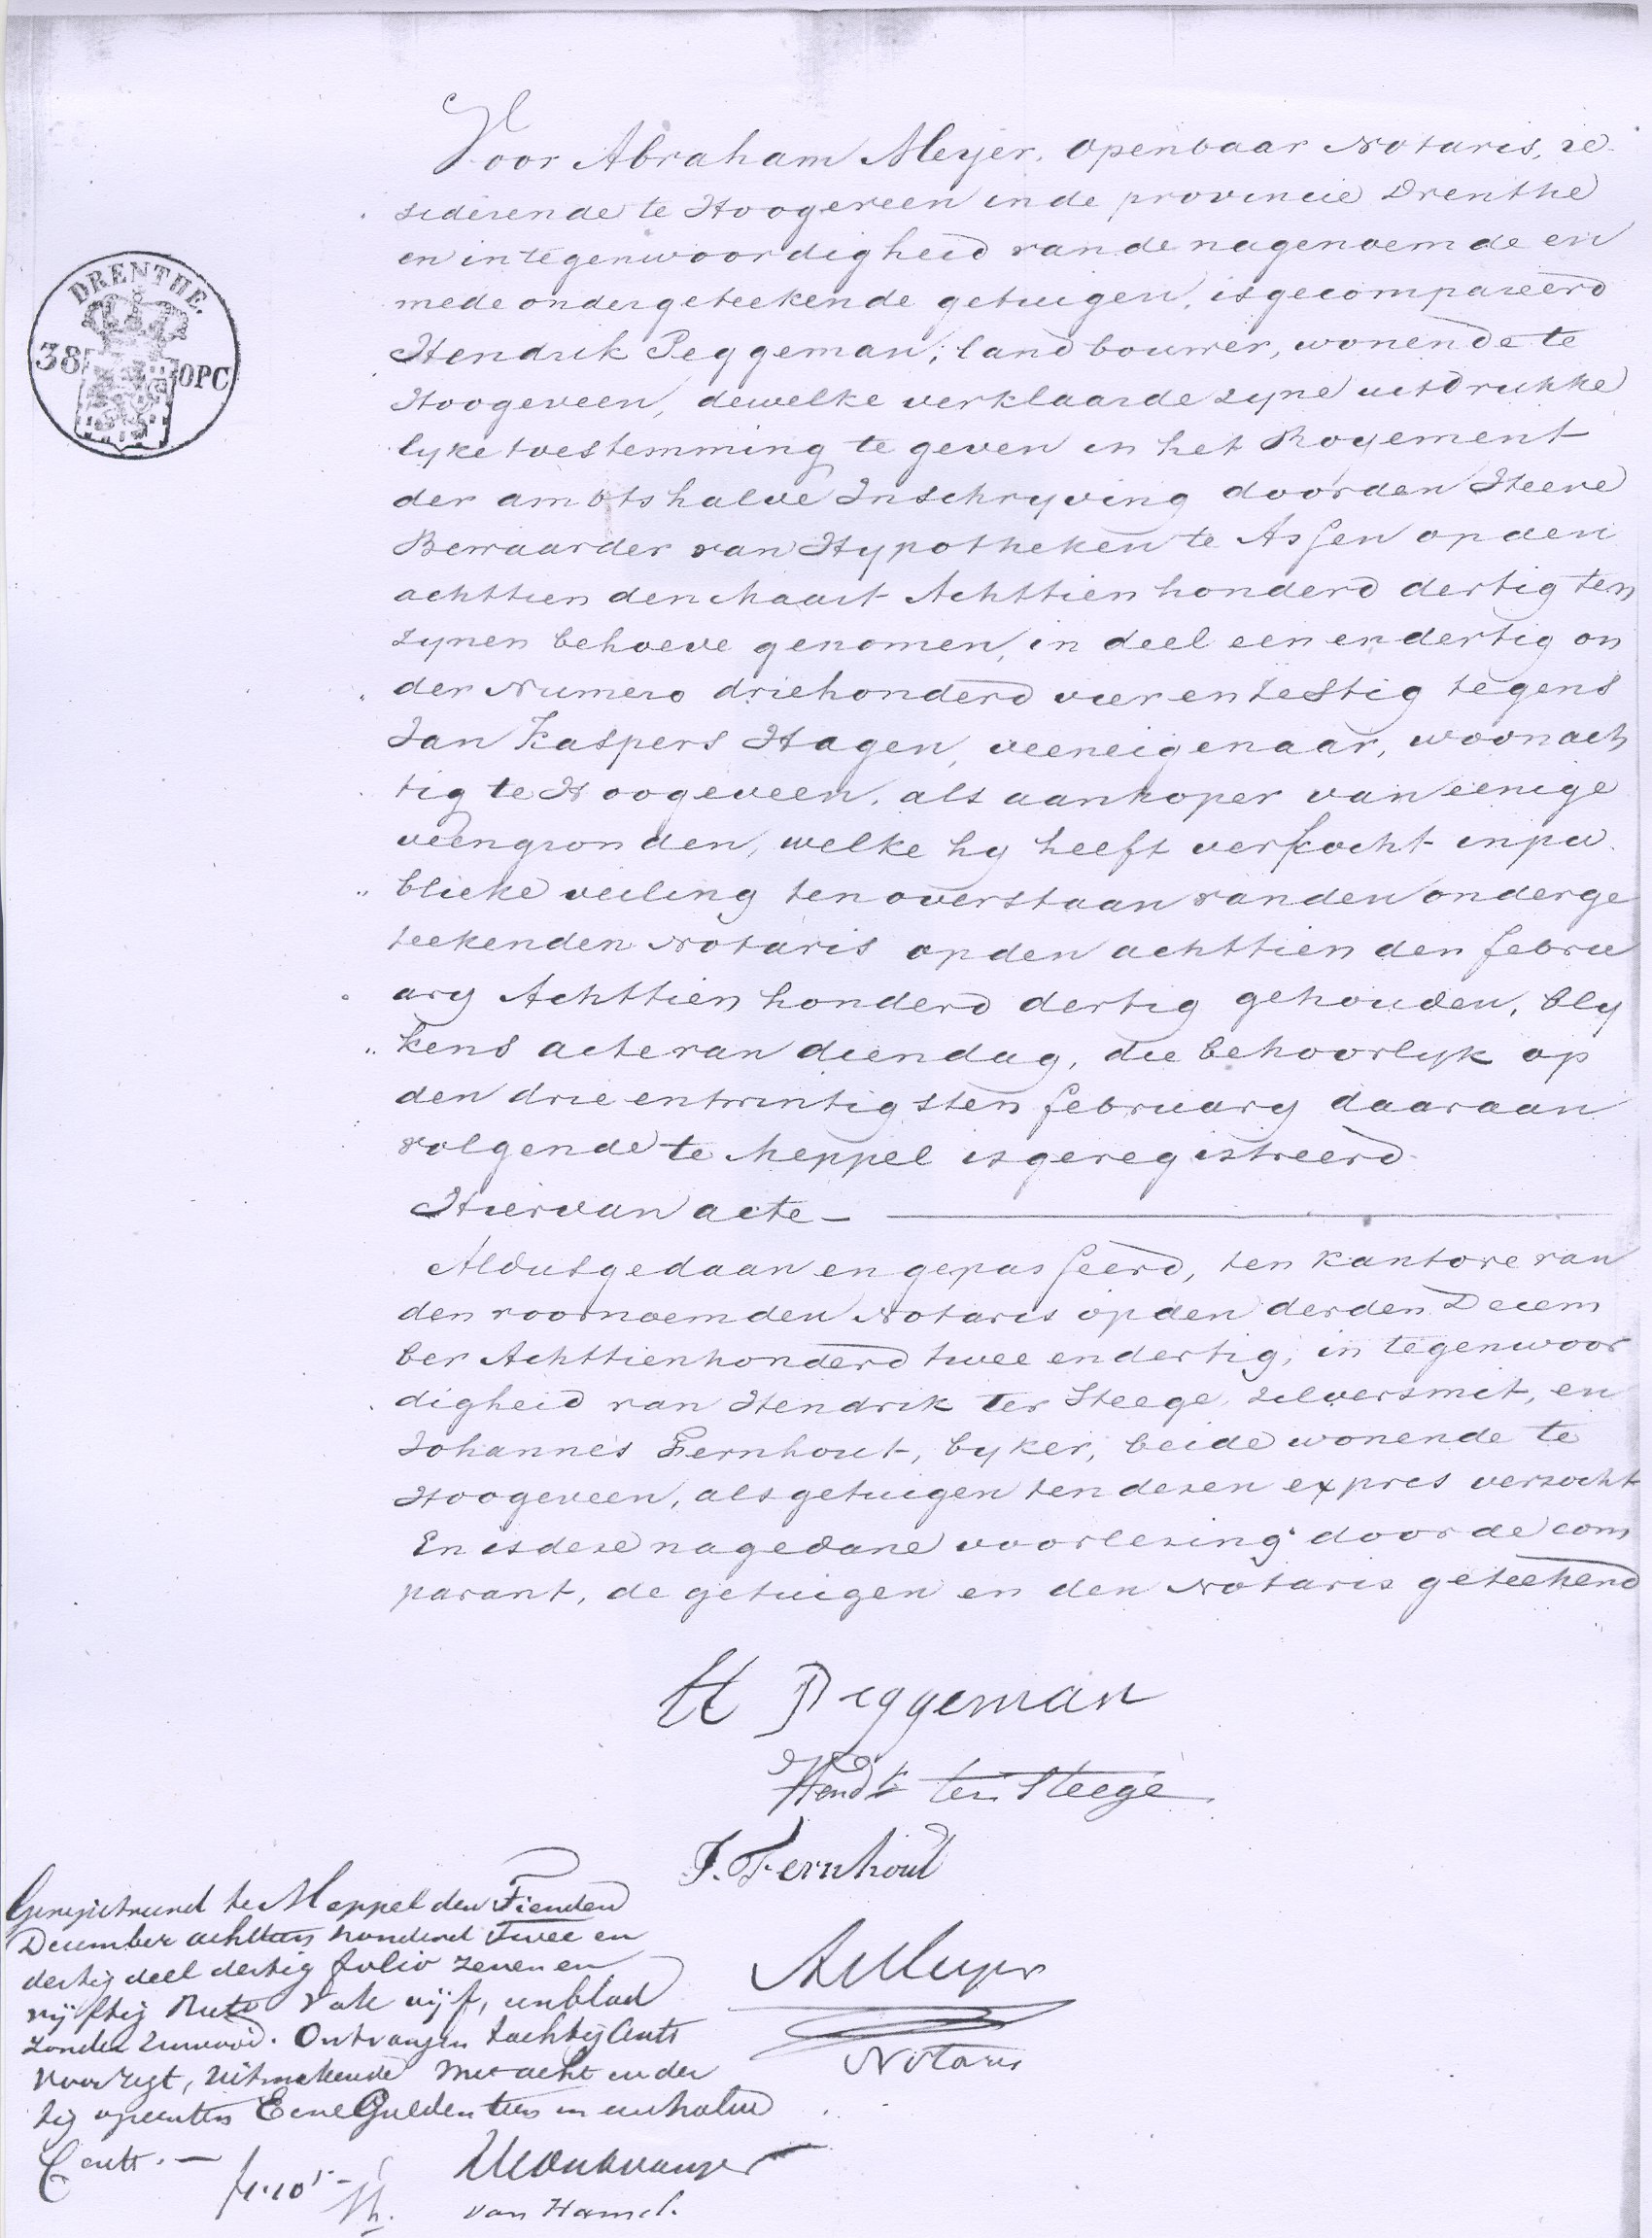 Voor Abraham Meyer, openbaar Notaris, re
siderende te Hoogeveen in de provincie Drenthe
en in tegenwoordigheid van de nagenoemde en
mede ondergeteekende getuigen, is gecompareerd
DRENTHE.
38 OPC
Hendrik Peggeman, landbouwer, wonende te
Hoogeveen, dewelke verklaarde zyne uitdrukke
lyke toestemming te geven in het Royement
der ambtshalve Inschryving door den Heere
Bewaarder van Hypotheken te Assen op den
achttienden Maart Achttien honderd dertig ten
zynen behoeve genomen, in deel een en dertig on
der Numero driehonderd vier en testig tegens
Jan Kaspers Hagen, veeneigenaar, woonach
tig te Hoogeveen, als aankoper van eenige
veengronden, welke hy heeft verkocht in pu
blieke veiling ten overstaan van den onderge
teekenden Notaris op den achttienden febru
ary Achttien honderd dertig gehouden, bly
kens acte van dien dag, die behoorlyk op
den drie en twintigsten february daaraan
volgende te Meppel is geregistreerd.
Hiervan acte —
Aldus gedaan en gepasseerd, ten kantore van
den voornoemden Notaris op den derden Decem
ber Achttienhonderd twee en dertig, in tegenwoor
digheid van Hendrik ter Steege, zilversmit, en
Johannes Fernhout, byker, beide wonende te
Hoogeveen, als getuigen ten dezen expres verzocht
En is deze na gedane voorlezing door de com
parant, de getuigen en den Notaris geteekend
H Peggeman
Hendk ter Steege
J. Fernhout
AMeyer
Notaris
Geregistreerd te Meppel den Tienden
December achttien honderd Twee en
dertig deel dertig folio zeven en
vijftig Recto vak vijf, een blad
zonder renvooi. Ontvangen tachtig Cents
voor regt, uitmakende met acht en der
tig opcenten Eene Gulden tien en een halve
Cents. —
f 1.10⁵ -
De Ontvanger
van Hamel.